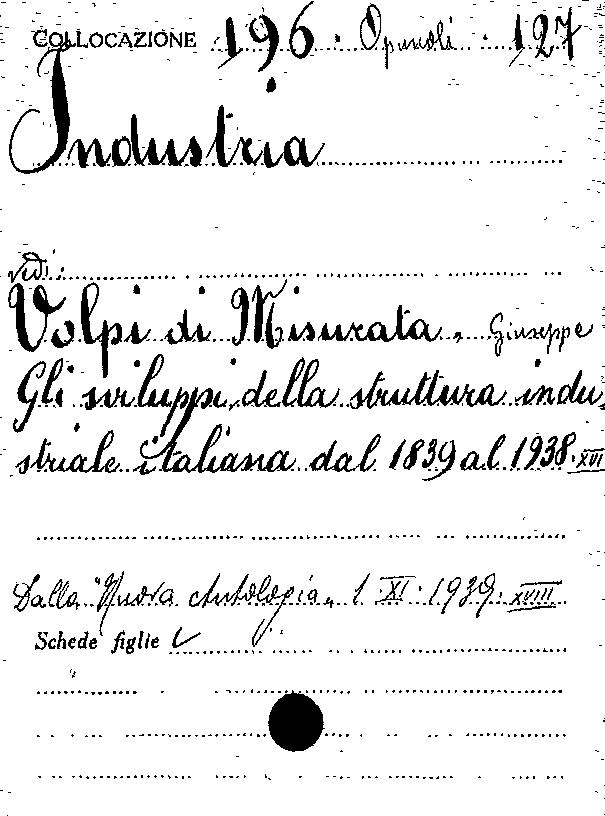 COLLOCAZIONE 196. Opuscoli. 127
Industria
Vedi:
Volpi di Misurata, Giuseppe
Gli sviluppi della struttura indu,
striale italiana dal 1839 al 1938. XVI
Dalla "Nuova Antologia" 1. XI. 1939. XVIII
Schede figlie